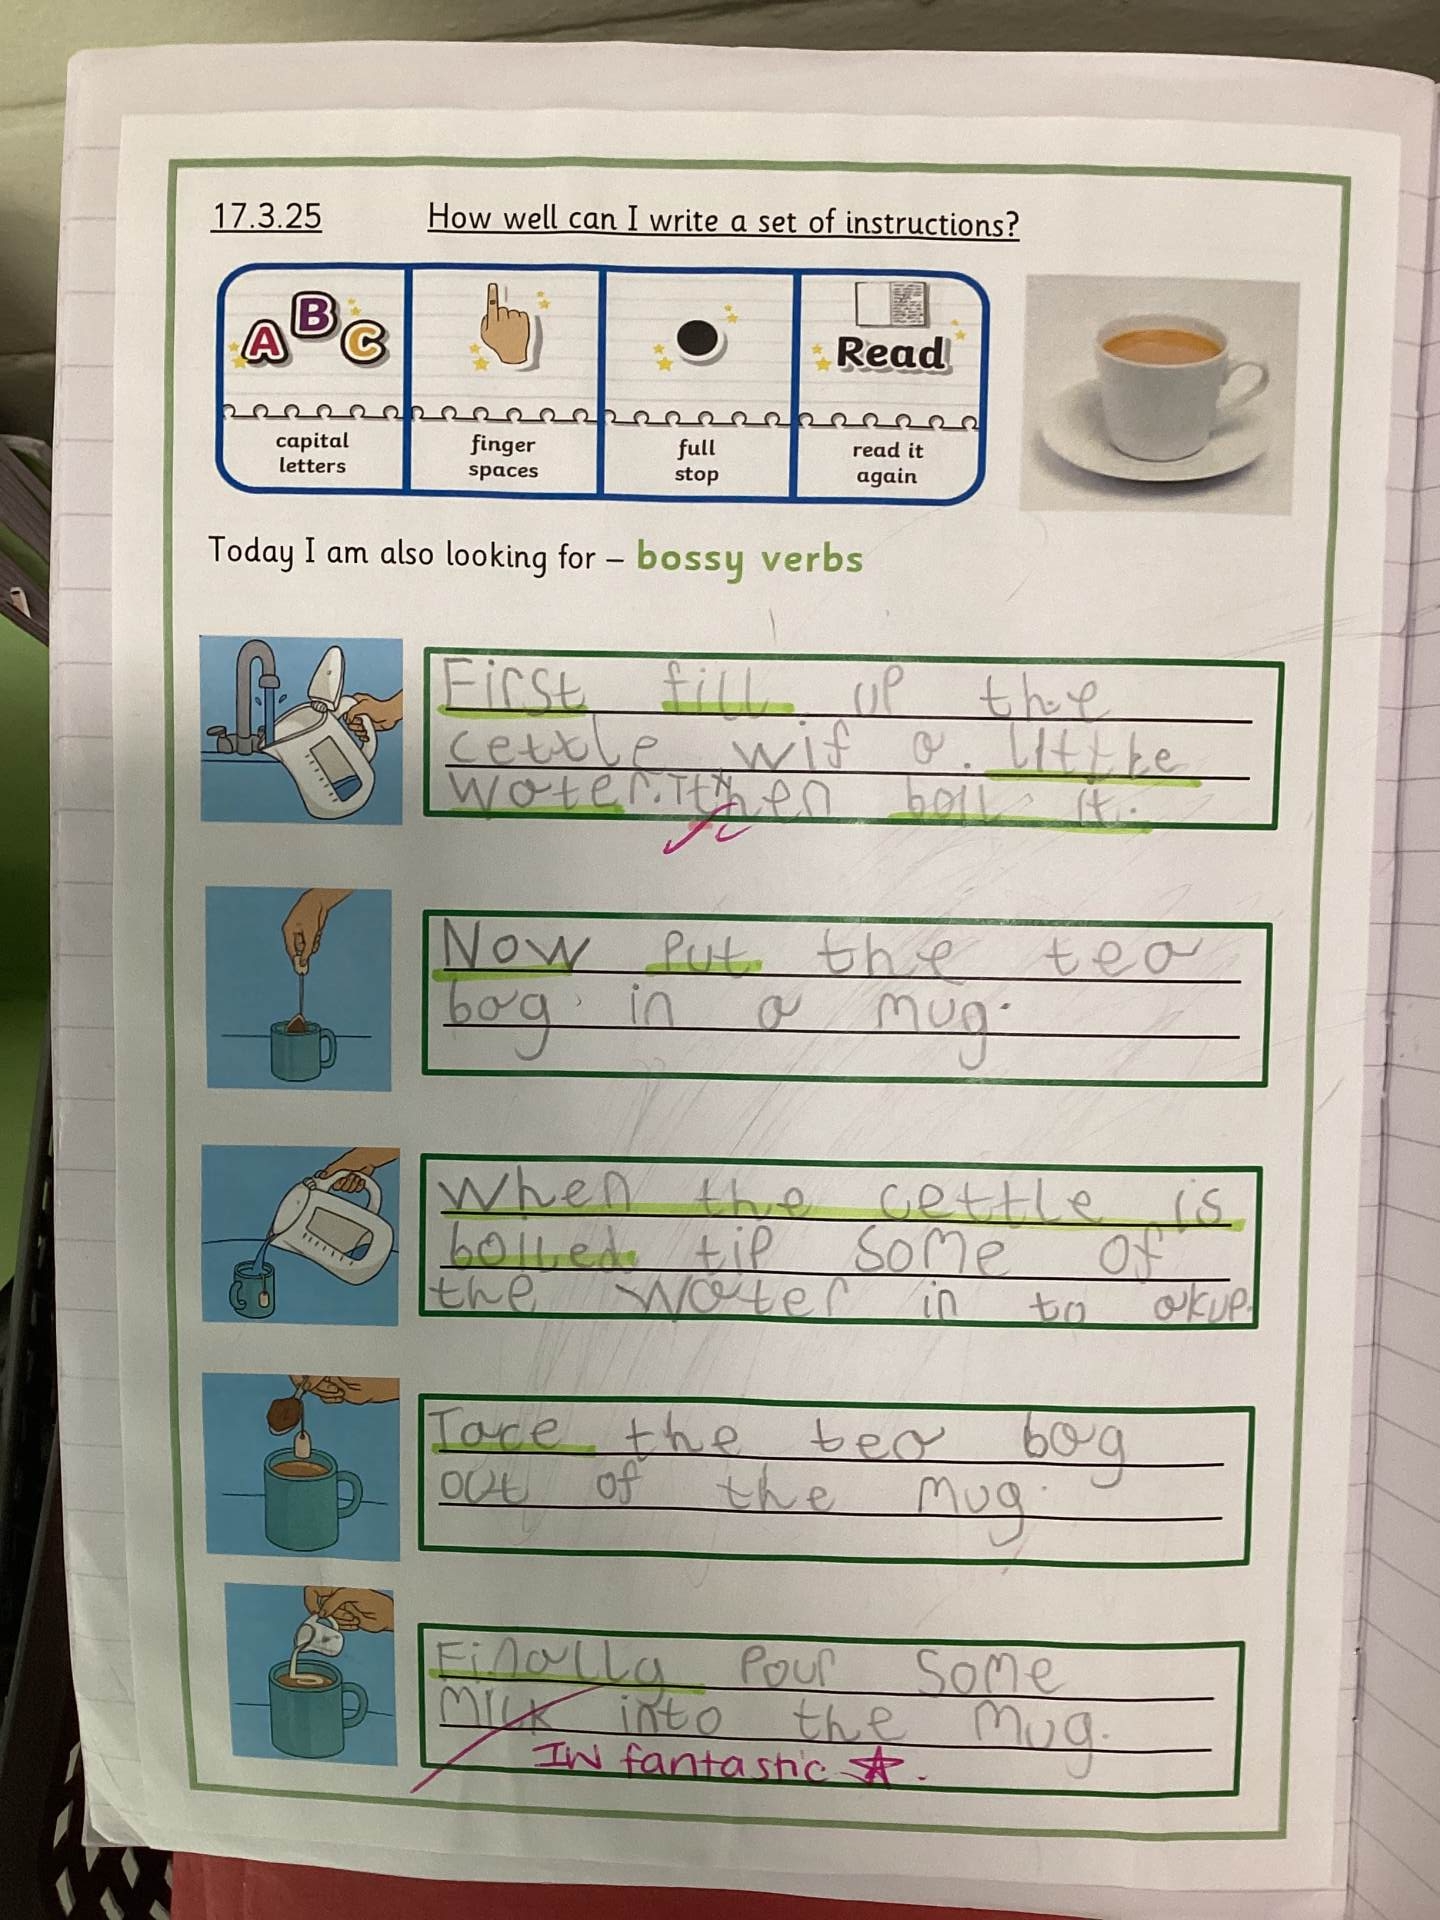 17.3.25 How well can I write a set of instructions?
A B C
Read
capital letters
finger spaces
full stop
read it again
Today I am also looking for – bossy verbs
First fill up the
cettle wif a little
water. Then boil it.
Now put the tea
bag in a mug.
When the cettle is
boiled tip some of
the water in to a kup.
Tace the tea bag
out of the mug.
Finally pour some
milk into the mug.
IW fantastic